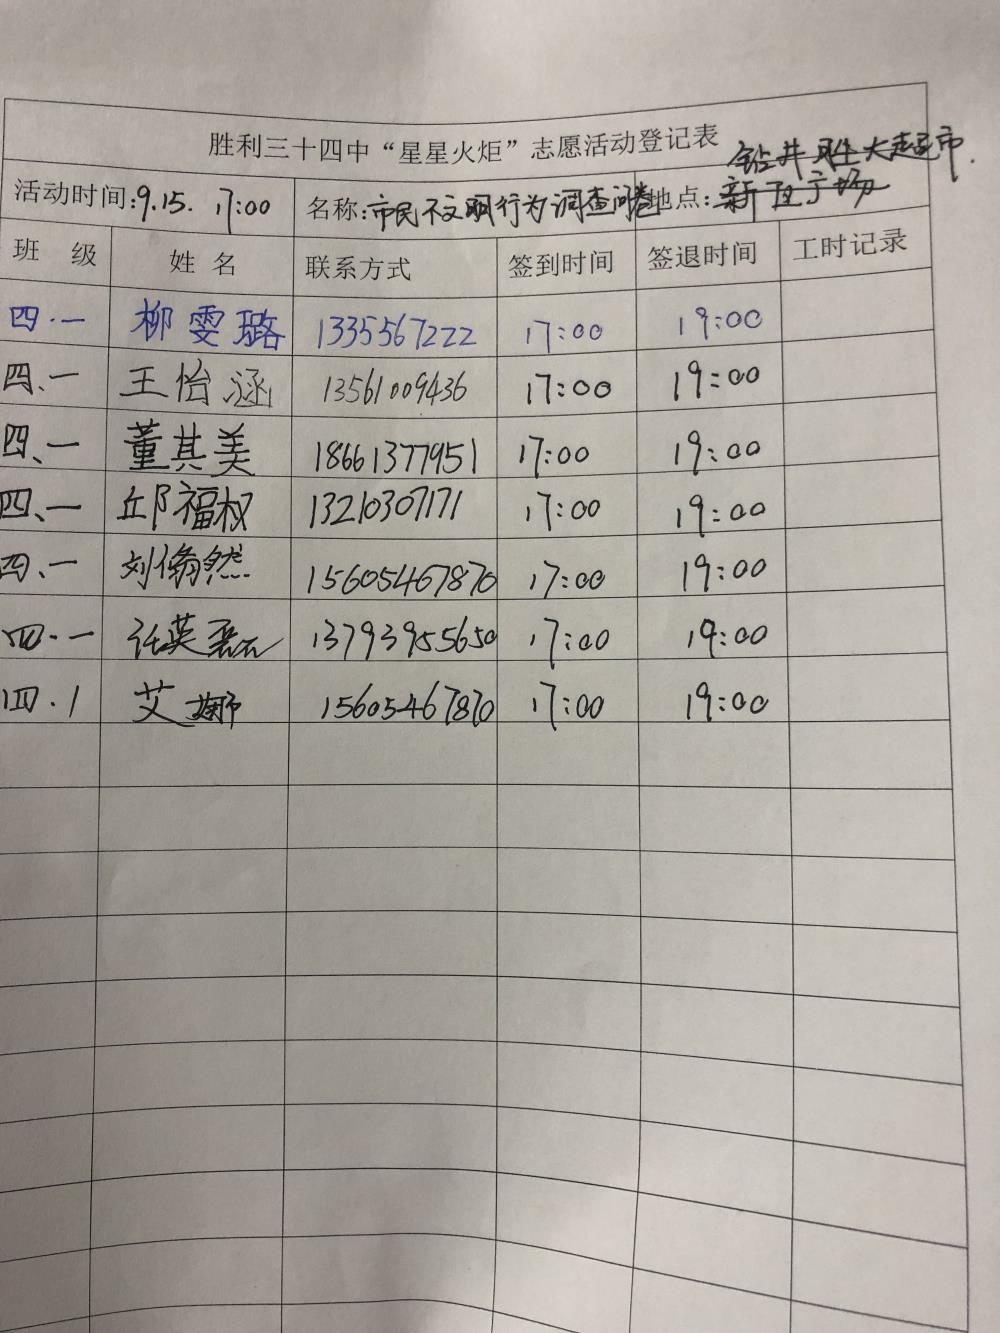 胜利三十四中“星星火炬”志愿活动登记表
钻井胜大超市.
活动时间:9.15. 17:00 名称:市民不文明行为调查问卷 地点:新卫广场
班 级 姓 名 联系方式 签到时间 签退时间 工时记录
四·一 柳雯璐 1335567222 17:00 19:00
四、一 王怡涵 13561009436 17:00 19:00
四、一 董其美 18661377951 17:00 19:00
四、一 邱福权 13210307171 17:00 19:00
四、一 刘翛然 15605467870 17:00 19:00
四·一 任英磊 13793955650 17:00 19:00
四.1 艾娜 15605467870 17:00 19:00